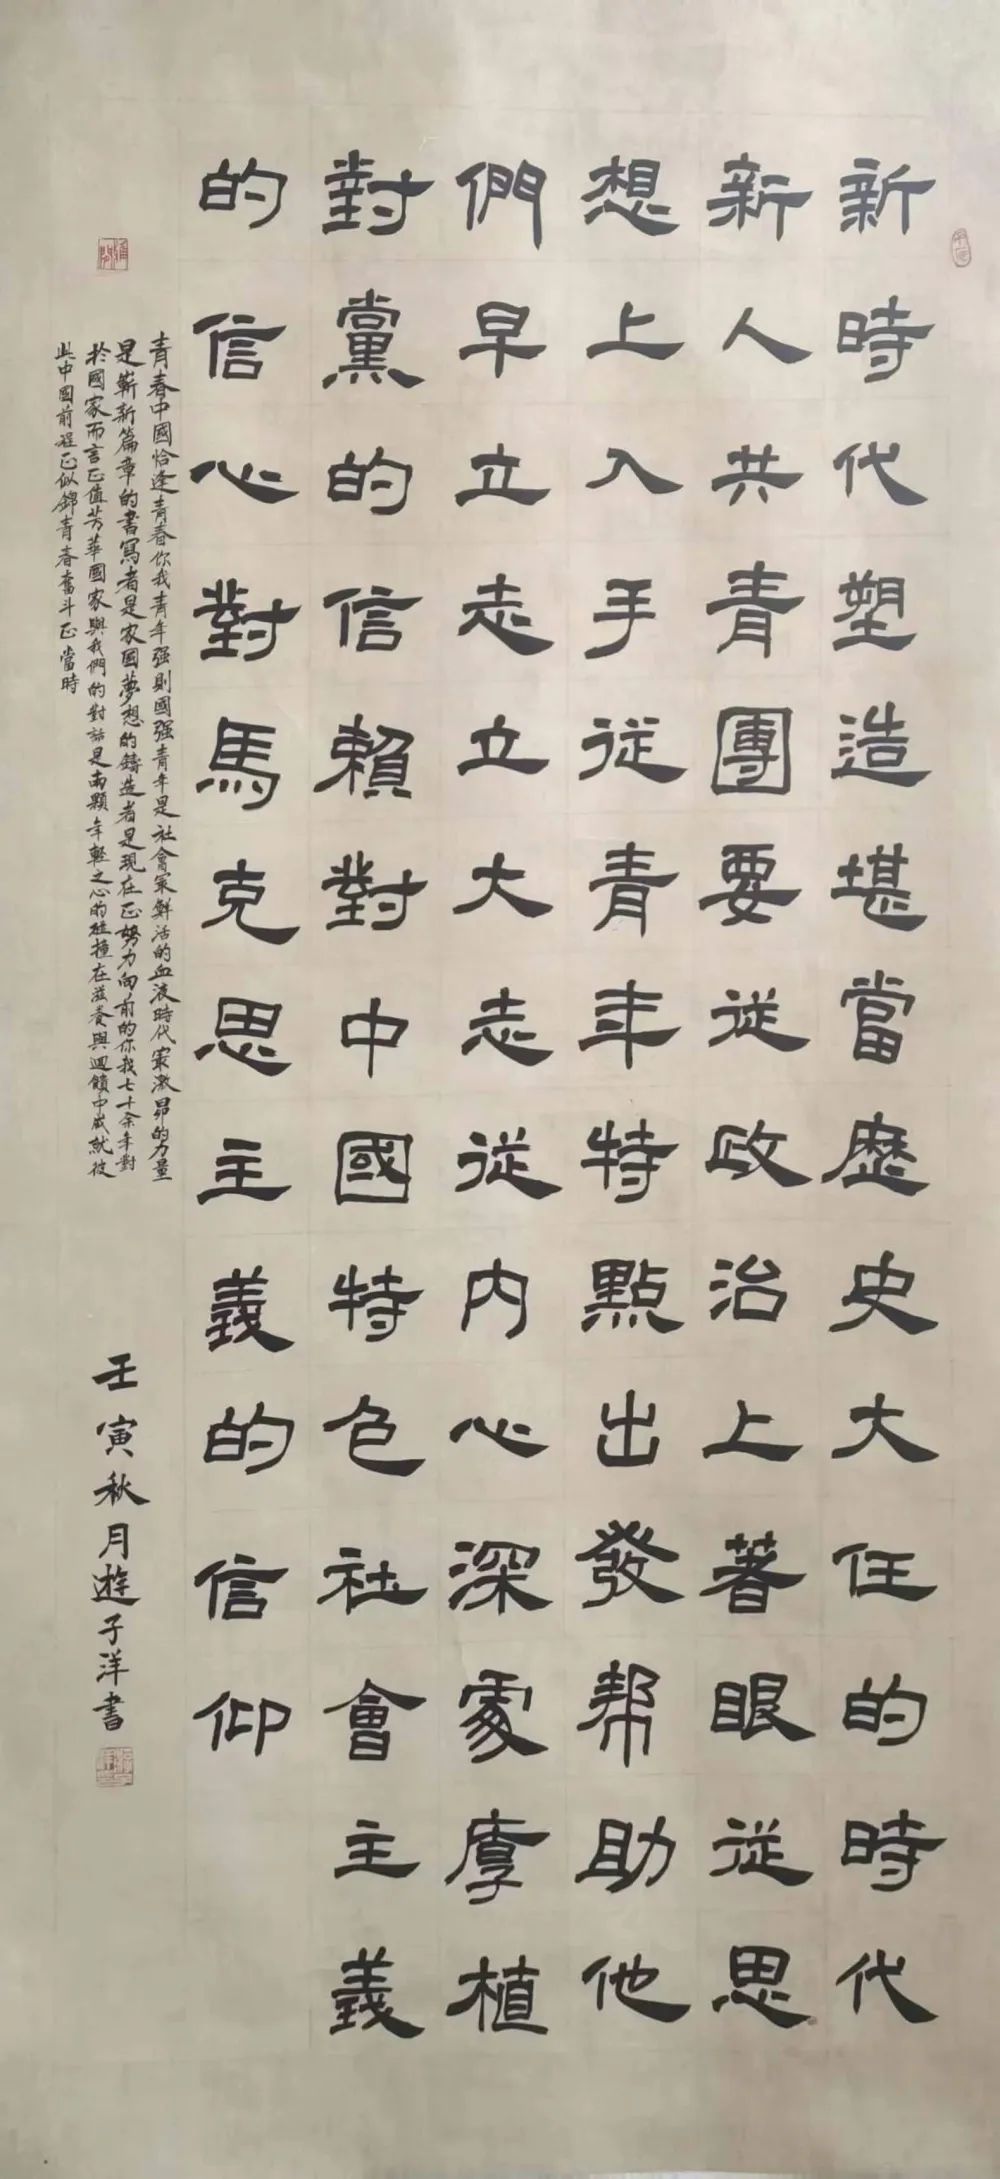 新時代塑造堪當歷史大任的時代
新人共青團要從政治上著眼從思
想上入手從青年特點出發幫助他
們早立志立大志從內心深處厚植
對黨的信賴對中國特色社會主義
的信心對馬克思主義的信仰
青春中國恰逢青春你我青年强則國强青年是社會最鮮活的血液時代最激昂的力量
是嶄新篇章的書寫者是家國夢想的鑄造者是現在正努力向前的你我七十余年對
於國家而言正值芳華國家與我們的對話是兩顆年輕之心的碰撞在滋養與迴饋中成就彼
此中國前程正似錦青春奮斗正當時
壬寅秋月遊子洋書